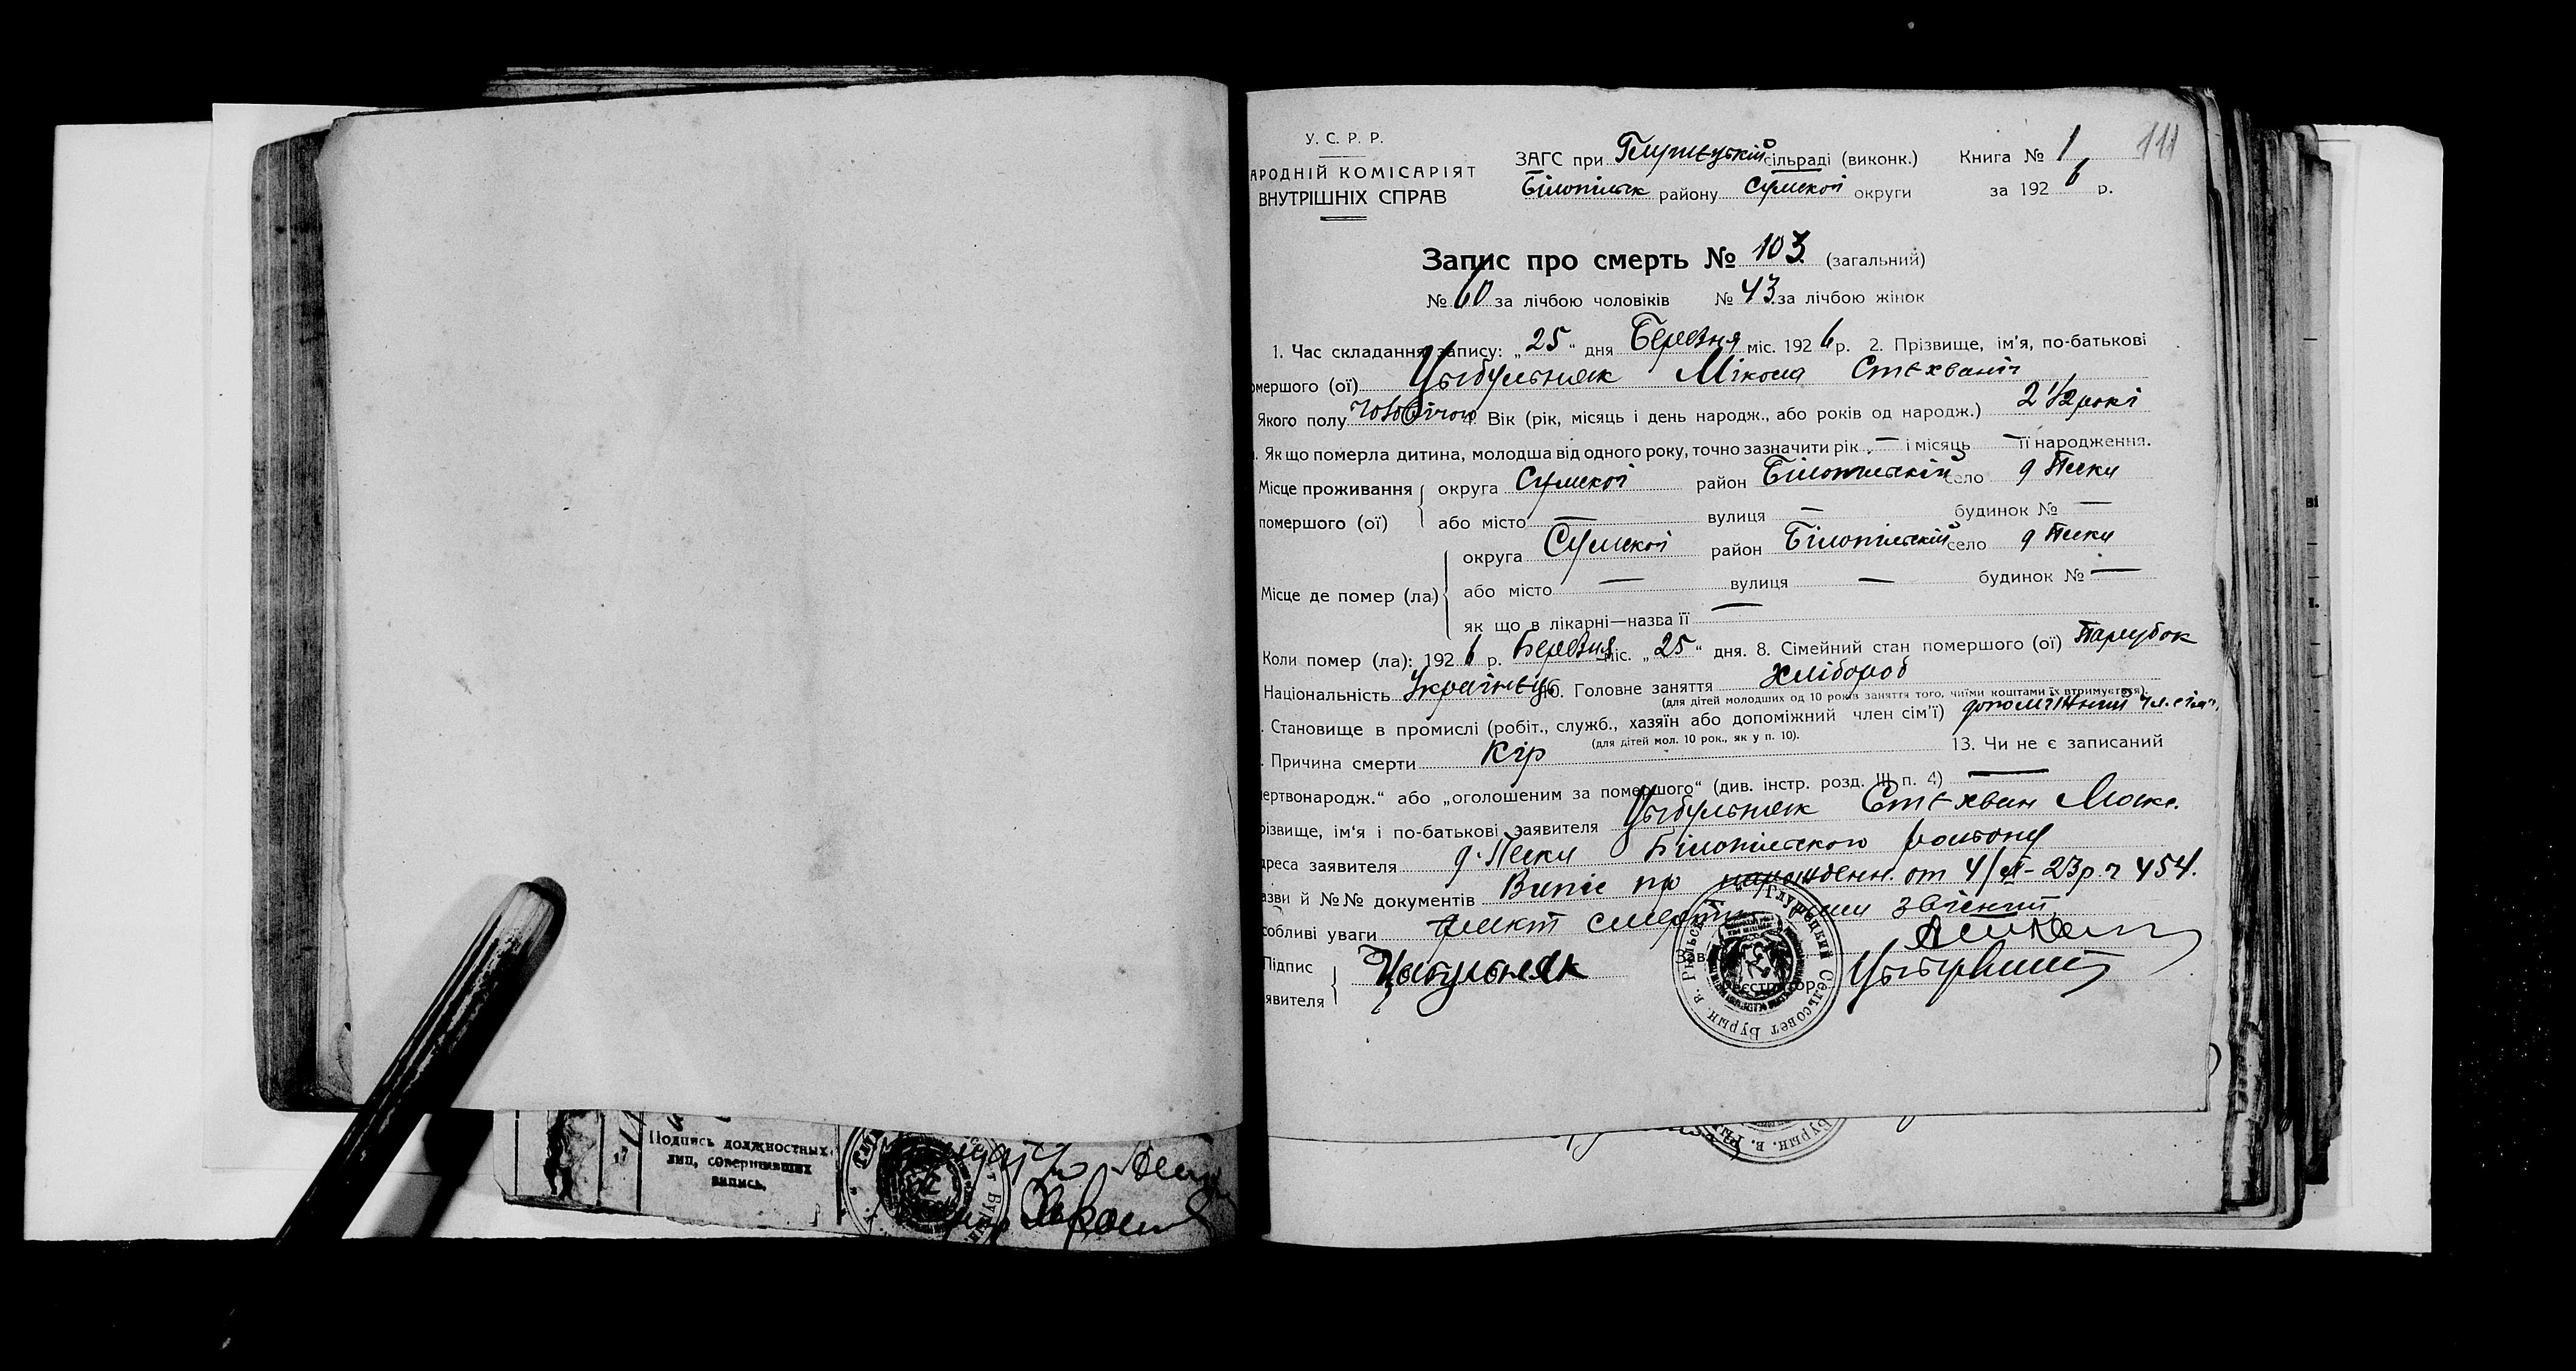 111
У. С. Р. Р.
ЗАГС при Глушецькій сільраді (виконк.) Книга № 1
АРОДНІЙ КОМІСАРІЯТ
Білопільск району Сумской округи за 1926 р.
ВНУТРІШНІХ СПРАВ
Запис про смерть № 103 (загальний)
№ 60 за лічбою чоловіків № 43 за лічбою жінок
1. Час складання запису: „25“ дня Березня міс. 1926 р. 2. Прізвище, ім'я, по-батькові
омершого (ої) Цыбульняк Мікола Стехваніч
Якого полу чоловічого 4. Вік (рік, місяць і день народж., або років од народж.) 2 1/2 рокі
. Як що померла дитина, молодша від одного року, точно зазначити рік — і місяць — її народження.
Місце проживання округа Сумской район Білопільский село д Пески
помершого (ої) або місто — вулиця — будинок № —
округа Сумской район Білопільский село д Пески
Місце де помер (ла) або місто — вулиця — будинок № —
як що в лікарні—назва її —
Коли помер (ла): 1926 р. Березня міс. „25“ дня. 8. Сімейний стан помершого (ої) Парубок
Національність Українец 10. Головне заняття Хлібороб
(для дітей молодших од 10 років заняття того, чиїми коштами їх втримується).
. Становище в промислі (робіт., служб., хазяїн або допоміжний член сім'ї) допоміжний чл. сім'ї
(для дітей мол. 10 рок., як у п. 10).
. Причина смерти Кір 13. Чи не є записаний
ертвонародж.“ або „оголошеним за помершого“ (див. інстр. розд. III п. 4) —
різвище, ім'я і по-батькові заявителя Цыбульняк Стехван
дреса заявителя д. Пески Білопільского району
азви й №№ документів Випіс про нарожденн. от 4/ - 23р ч 454.
собливі уваги факт смерти
Підпис Цыбульняк Зав.
явителя Реєстратор
Глушецкий Сельсовет Бурын. в. Рыльск
Подпись должностных
лиц, совершивших
запись.
Бурын. в.